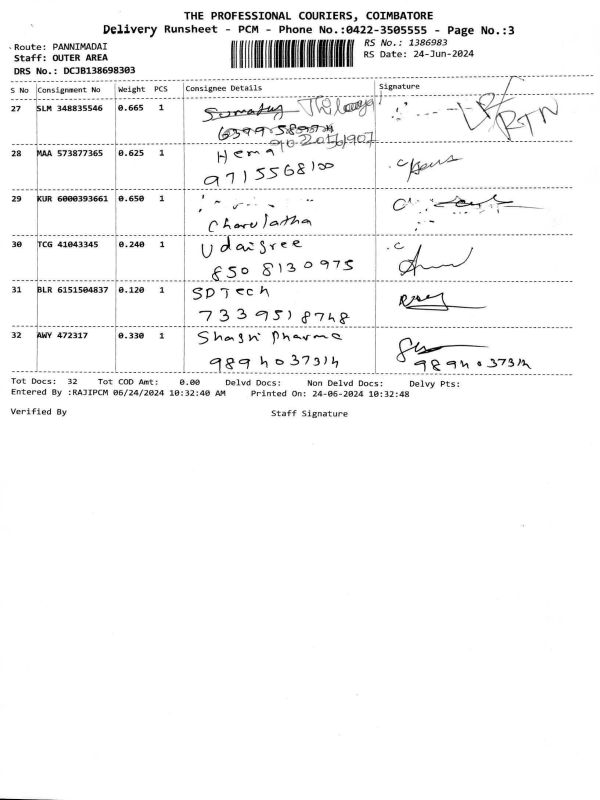 THE PROFESSIONAL COURIERS, COIMBATORE
Delivery Runsheet - PCM - Phone No.:0422-3505555 - Page No.:3
Route: PANNIMADAI
RS No.: 1386983
Staff: OUTER AREA
RS Date: 24-Jun-2024
DRS No.: DCJB138698303
S No Consignment No Weight PCS Consignee Details Signature
27 SLM 348835546 0.665 1
LP/
RTN
28 MAA 573877365 0.625 1 Hema
9715568100
29 KUR 6000393661 0.650 1
Charulatha
30 TCG 41043345 0.240 1 Udaisree
850 8130975
31 BLR 6151504837 0.120 1 SDTech
7339518748
32 AWY 472317 0.330 1 Shasri Pharma
9894037314
9894037314
Tot Docs: 32 Tot COD Amt: 0.00 Delvd Docs: Non Delvd Docs: Delvy Pts:
Entered By :RAJIPCM 06/24/2024 10:32:40 AM Printed On: 24-06-2024 10:32:48
Verified By Staff Signature